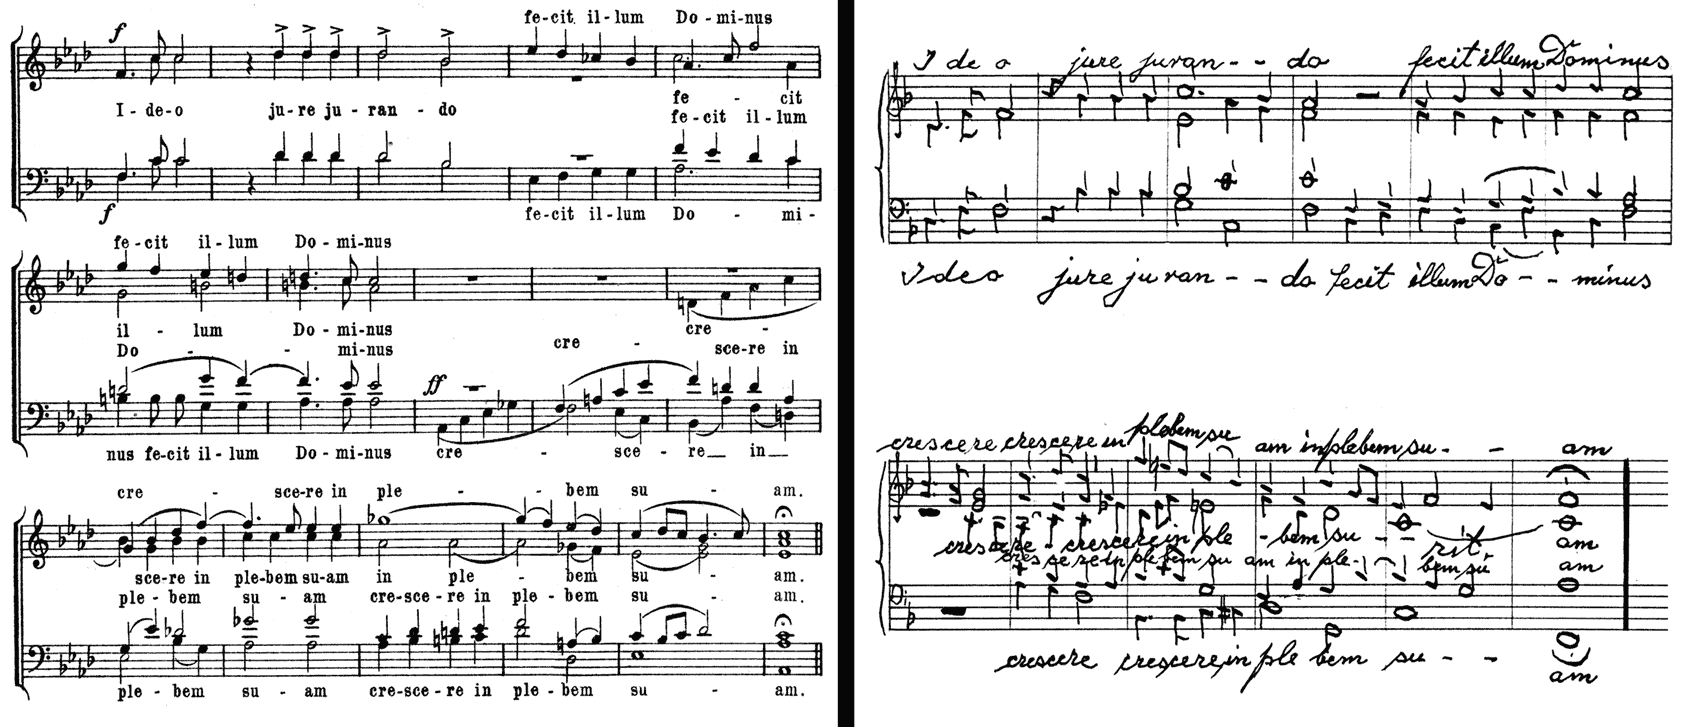 fe-cit il-lum Do-mi-nus
f
fe - cit
I-de-o ju-re ju-ran-do fe-cit il-lum
f
fe-cit il-lum Do - mi-
fe-cit il-lum Do-mi-nus
il - lum Do-mi-nus cre -
Do - - mi-nus cre - sce-re in
ff
nus fe-cit il-lum Do-mi-nus cre - sce - re in
cre - sce-re in ple - - bem su - am.
sce-re in ple-bem su-am in ple - bem su - am.
ple - bem su - am cre-sce-re in ple-bem su - am.
ple-bem su - am cre-sce-re in ple-bem su - am.
I de o jure juran - - do fecit illum Dominus
I de o jure juran - - do fecit illum Do - - minus
crescere crescere in plebem su am in plebem su - - am
crescere - crescere in ple - bem su - rit. am
crescere in plebem su am in ple - bem su am
crescere crescere in ple bem su - - am